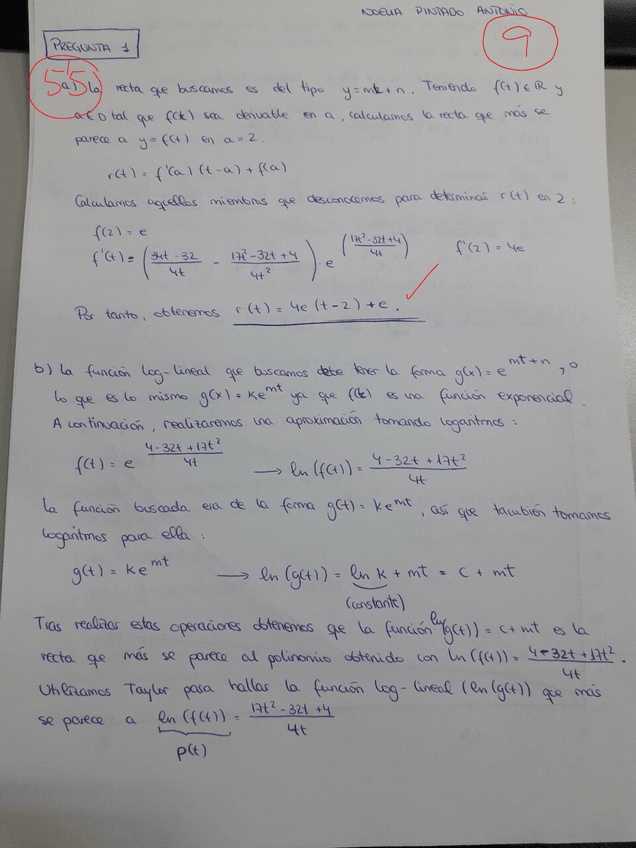 NOELIA PINTADO ANTONIO
9
PREGUNTA 1
5'5
a) La recta que buscamos es del tipo y=mt+n. Teniendo f(t) ∈ ℝ y
a ∈ D tal que f(t) sea derivable en a, calculamos la recta que más se
parece a y=f(t) en a=2.
r(t) = f'(a) (t-a) + f(a)
Calculamos aquellos miembros que desconocemos para determinar r(t) en 2:
f(2) = e
f'(t) = (34t-32/4t - 17t²-32t+4/4t²) · e^(17t²-32t+4/4t) f'(2) = 4e
Por tanto, obtenemos r(t) = 4e(t-2)+e.
b) La función log-lineal que buscamos debe tener la forma g(x) = e^mt+n, o
lo que es lo mismo g(x) = Ke^mt ya que f(t) es una función exponencial.
A continuación, realizaremos una aproximación tomando logaritmos:
f(t) = e^4-32t+17t²/4t → ln(f(t)) = 4-32t+17t²/4t
La función buscada era de la forma g(t) = Ke^mt, así que también tomamos
logaritmos para ella:
g(t) = Ke^mt → ln(g(t)) = ln K + mt = C + mt
(constante)
Tras realizar estas operaciones obtenemos que la función ln(g(t)) = C+mt es la
recta que más se parece al polinomio obtenido con ln(f(t)) = 4-32t+17t²/4t.
Utilizamos Taylor para hallar la función log-lineal (ln(g(t)) que más
se parece a ln(f(t)) = 17t²-32t+4/4t
p(t)